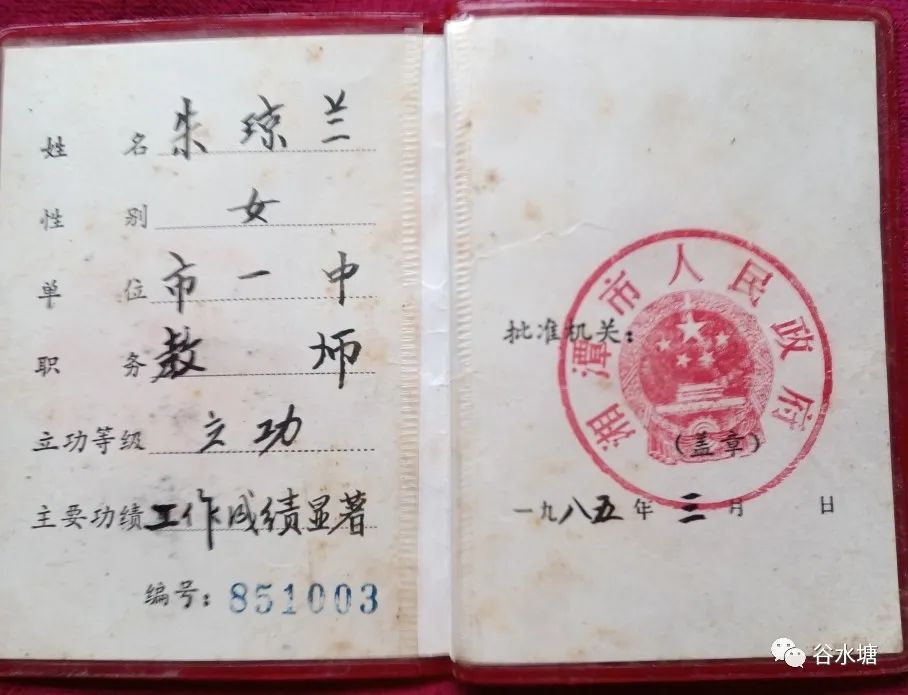 姓名 朱琼兰
性别 女
单位 市一中
职务 教师
立功等级 立功
主要功绩 工作成绩显著
编号：851003
湘潭市人民政府
批准机关：
（盖章）
一九八五年三月 日
谷水塘